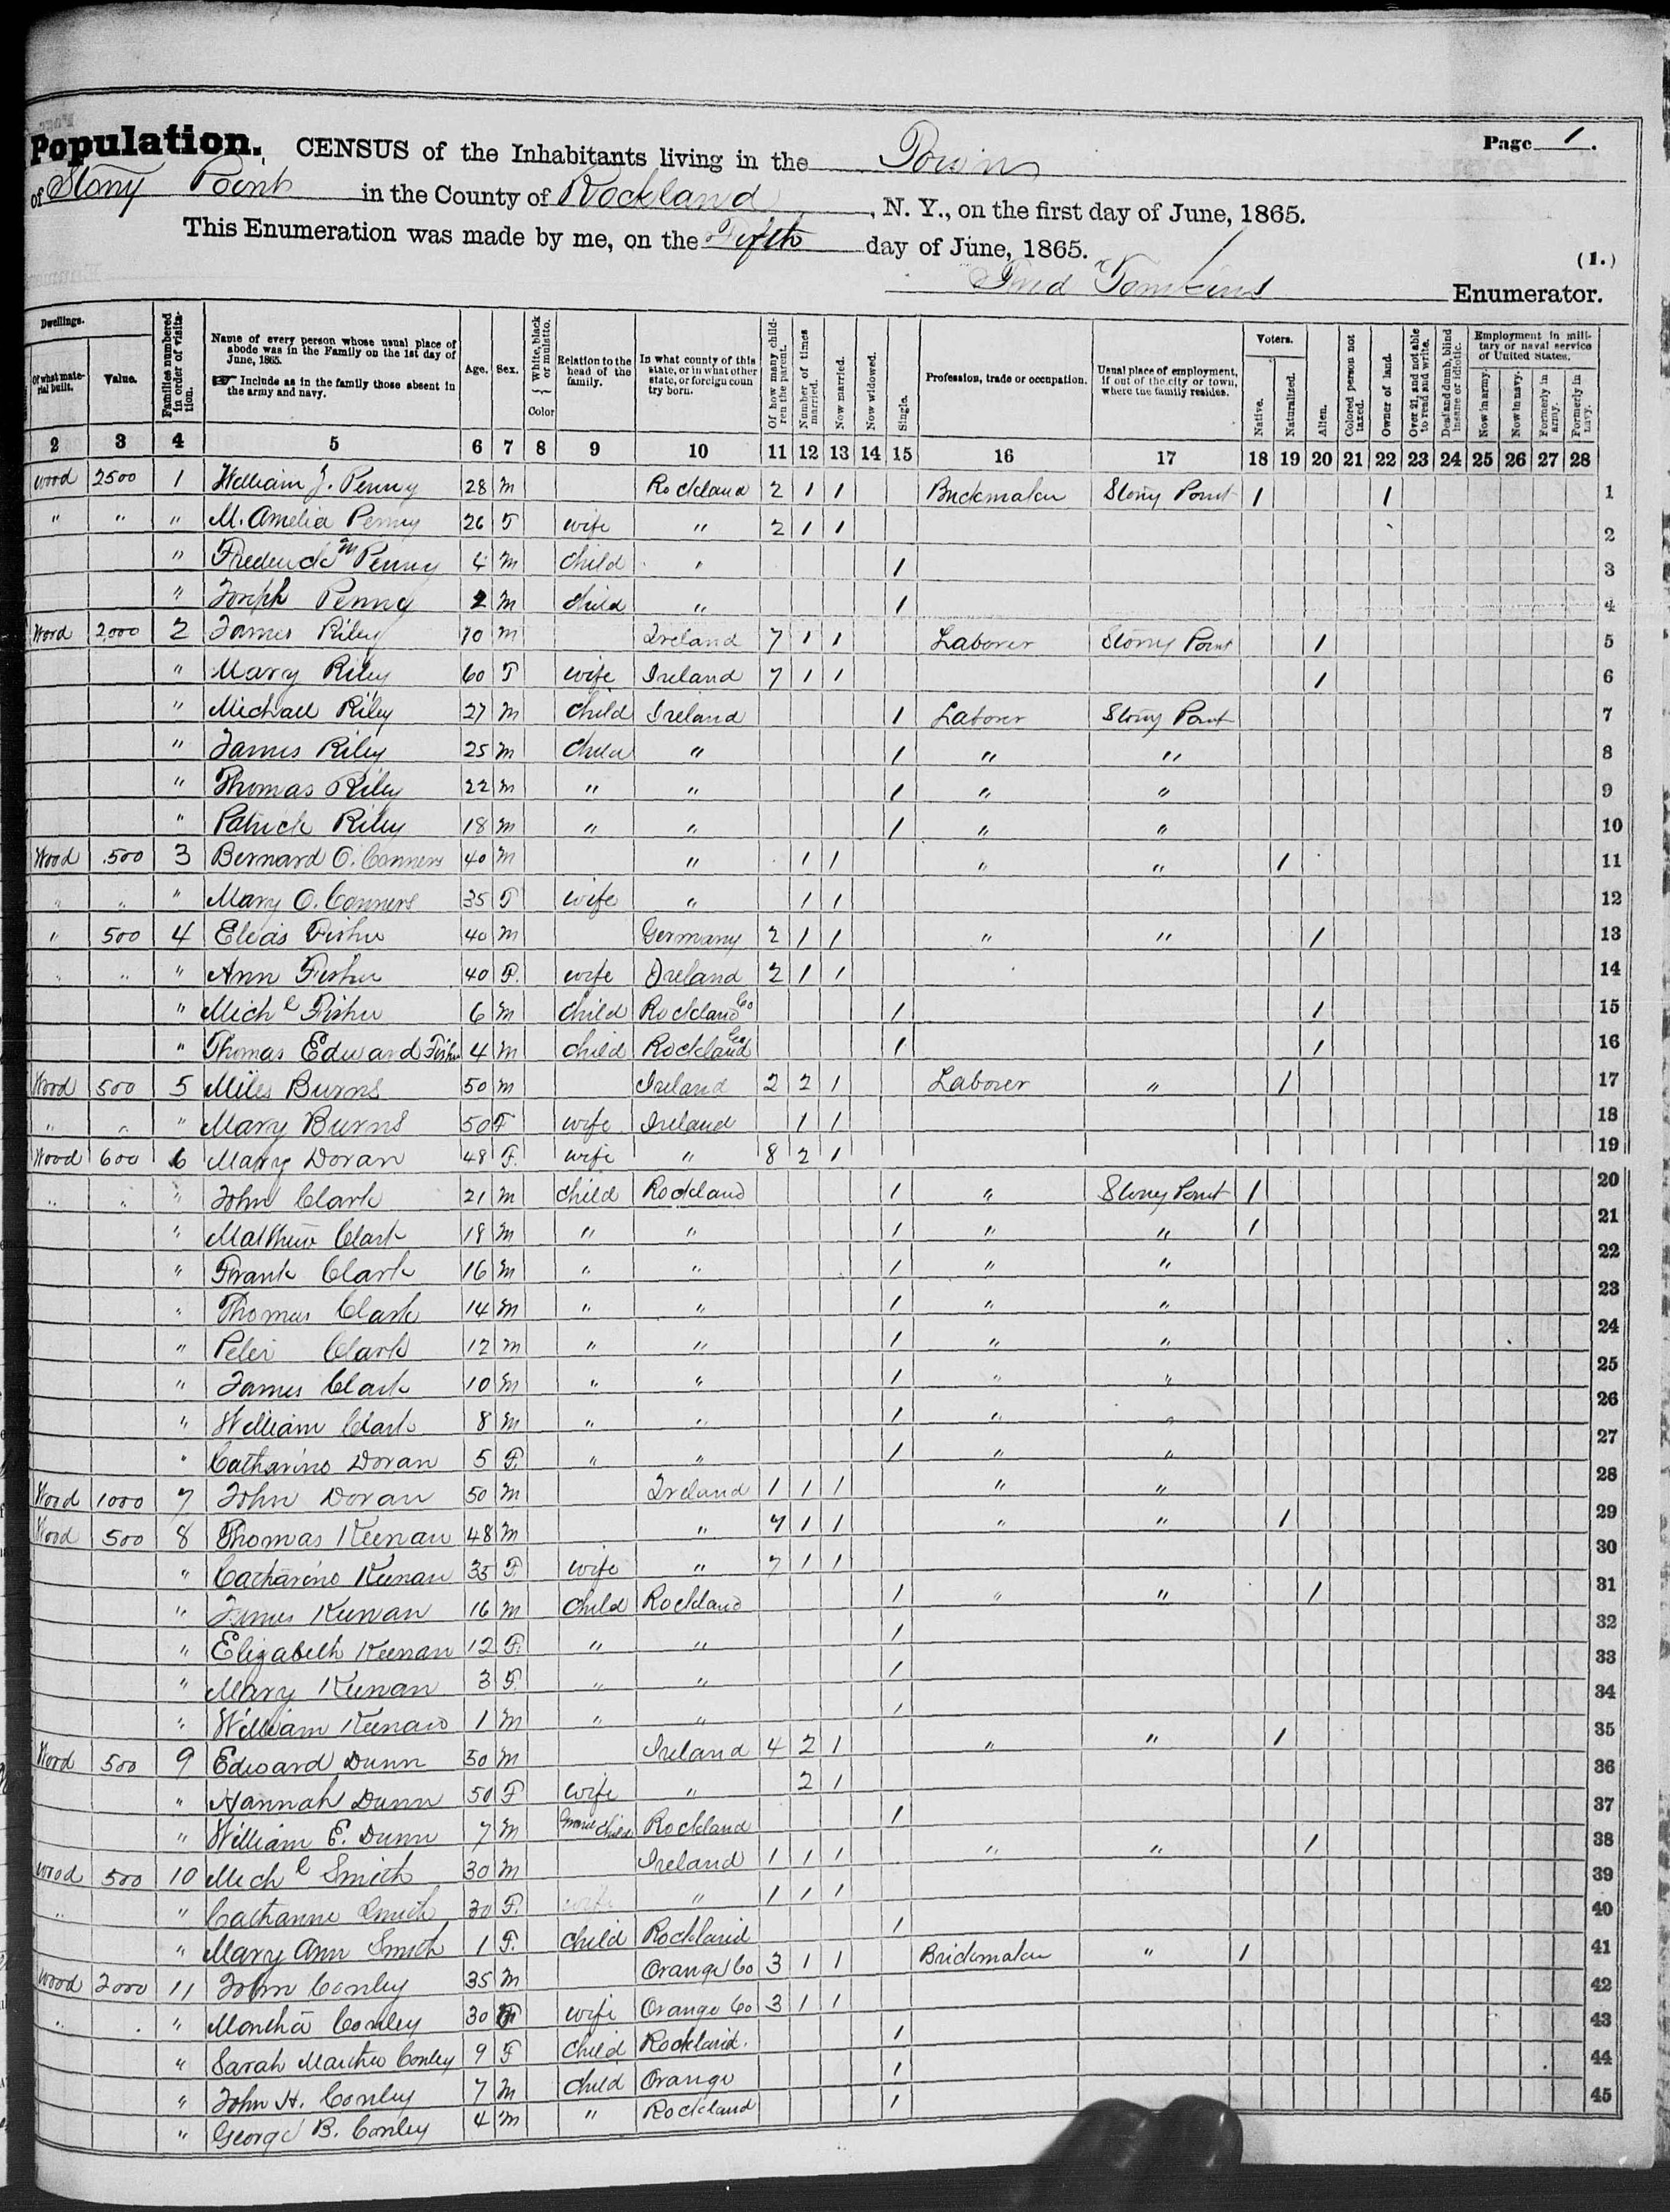 Population. CENSUS of the Inhabitants living in the Town Page 1.
of Stony Point in the County of Rockland, N. Y., on the first day of June, 1865.
This Enumeration was made by me, on the Fifth day of June, 1865.
(1.)
Tomkins Enumerator.
Dwellings. Of what material built. Value. Families numbered in order of visitation. Name of every person whose usual place of abode was in the Family on the 1st day of June, 1865. ☞ Include as in the family those absent in the army and navy. Age. Sex. White, black or mulatto. Color Relation to the head of the family. In what county of this state, or in what other state, or foreign country born. Of how many children the parent. Number of times married. Now married. Now widowed. Single. Profession, trade or occupation. Usual place of employment, if out of the city or town, where the family resides. Voters. Native. Naturalized. Alien. Colored person not taxed. Owner of land. Over 21, and not able to read and write. Deaf and dumb, blind insane or idiotic. Employment in military or naval service of United States. Now in army. Now in navy. Formerly in army. Formerly in navy.
2 3 4 5 6 7 8 9 10 11 12 13 14 15 16 17 18 19 20 21 22 23 24 25 26 27 28
wood 2500 1 William J. Penny 28 M Rockland 2 1 1 Brickmaker Stony Point 1 1 1
" " " M. Amelia Penny 26 F wife " 2 1 1 2
" Frederick M Penny 4 M child " 1 3
" Joseph Penny 2 M child " 1 4
Wood 2,000 2 James Riley 70 M Ireland 7 1 1 Laborer Stony Point 1 5
" Mary Riley 60 F wife Ireland 7 1 1 1 6
" Michael Riley 27 M child Ireland 1 Laborer Stony Point 7
" James Riley 25 M child " 1 " " 8
" Thomas Riley 22 M " " 1 " " 9
" Patrick Riley 18 M " " 1 " " 10
Wood .500 3 Bernard O. Conners 40 M " 1 1 " " 1 11
" " " Mary O. Conners 35 F wife " 1 1 12
" 500 4 Elias Fisher 40 M Germany 2 1 1 " " 1 13
" " " Ann Fisher 40 F. wife Ireland 2 1 1 14
" Mich l Fisher 6 M child Rockland Co 1 1 15
" Thomas Edward Fisher 4 M child Rockland Co 1 1 16
Wood 500 5 Miles Burns 50 M Ireland 2 2 1 Laborer " 1 17
" " " Mary Burns 50 F wife Ireland 1 1 18
Wood 600 6 Mary Doran 48 F. wife " 8 2 1 19
" " " John Clark 21 M child Rockland 1 " Stony Point 1 20
" Matthew Clark 18 M " " 1 " " 1 21
" Frank Clark 16 M " " 1 " " 22
" Thomas Clark 14 M " " 1 " " 23
" Peter Clark 12 M " " 1 " " 24
" James Clark 10 M " " 1 " " 25
" William Clark 8 M " " 1 " " 26
" Catharine Doran 5 F. " " 1 " " 27
Wood 1000 7 John Doran 50 M Ireland 1 1 1 " " 28
Wood 500 8 Thomas Keenan 48 M " 7 1 1 " " 1 29
" Catharine Keenan 35 F. wife " 7 1 1 30
" James Keenan 16 M child Rockland 1 " " 1 31
" Elizabeth Keenan 12 F. " " 1 32
" Mary Keenan 3 F. " " 1 33
" William Keenan 1 M " " 1 34
Wood 500 9 Edward Dunn 50 M Ireland 4 2 1 " " 1 35
" Hannah Dunn 50 F wife " 2 1 36
" William E. Dunn 7 M child Rockland 1 37
wood 500 10 Mich l Smith 30 M Ireland 1 1 1 " " 1 38
" " Catharine Smith 30 F. wife " 1 1 1 39
" Mary Ann Smith 1 F. child Rockland 1 40
wood 2000 11 John Conley 35 M Orange Co 3 1 1 Brickmaker " 1 41
" " " Martha Conley 30 F wife Orange Co 3 1 1 42
" Sarah Martha Conley 9 F child Rockland. 1 43
" John H. Conley 7 M child Orange 1 44
" George B. Conley 4 M " Rockland 1 45